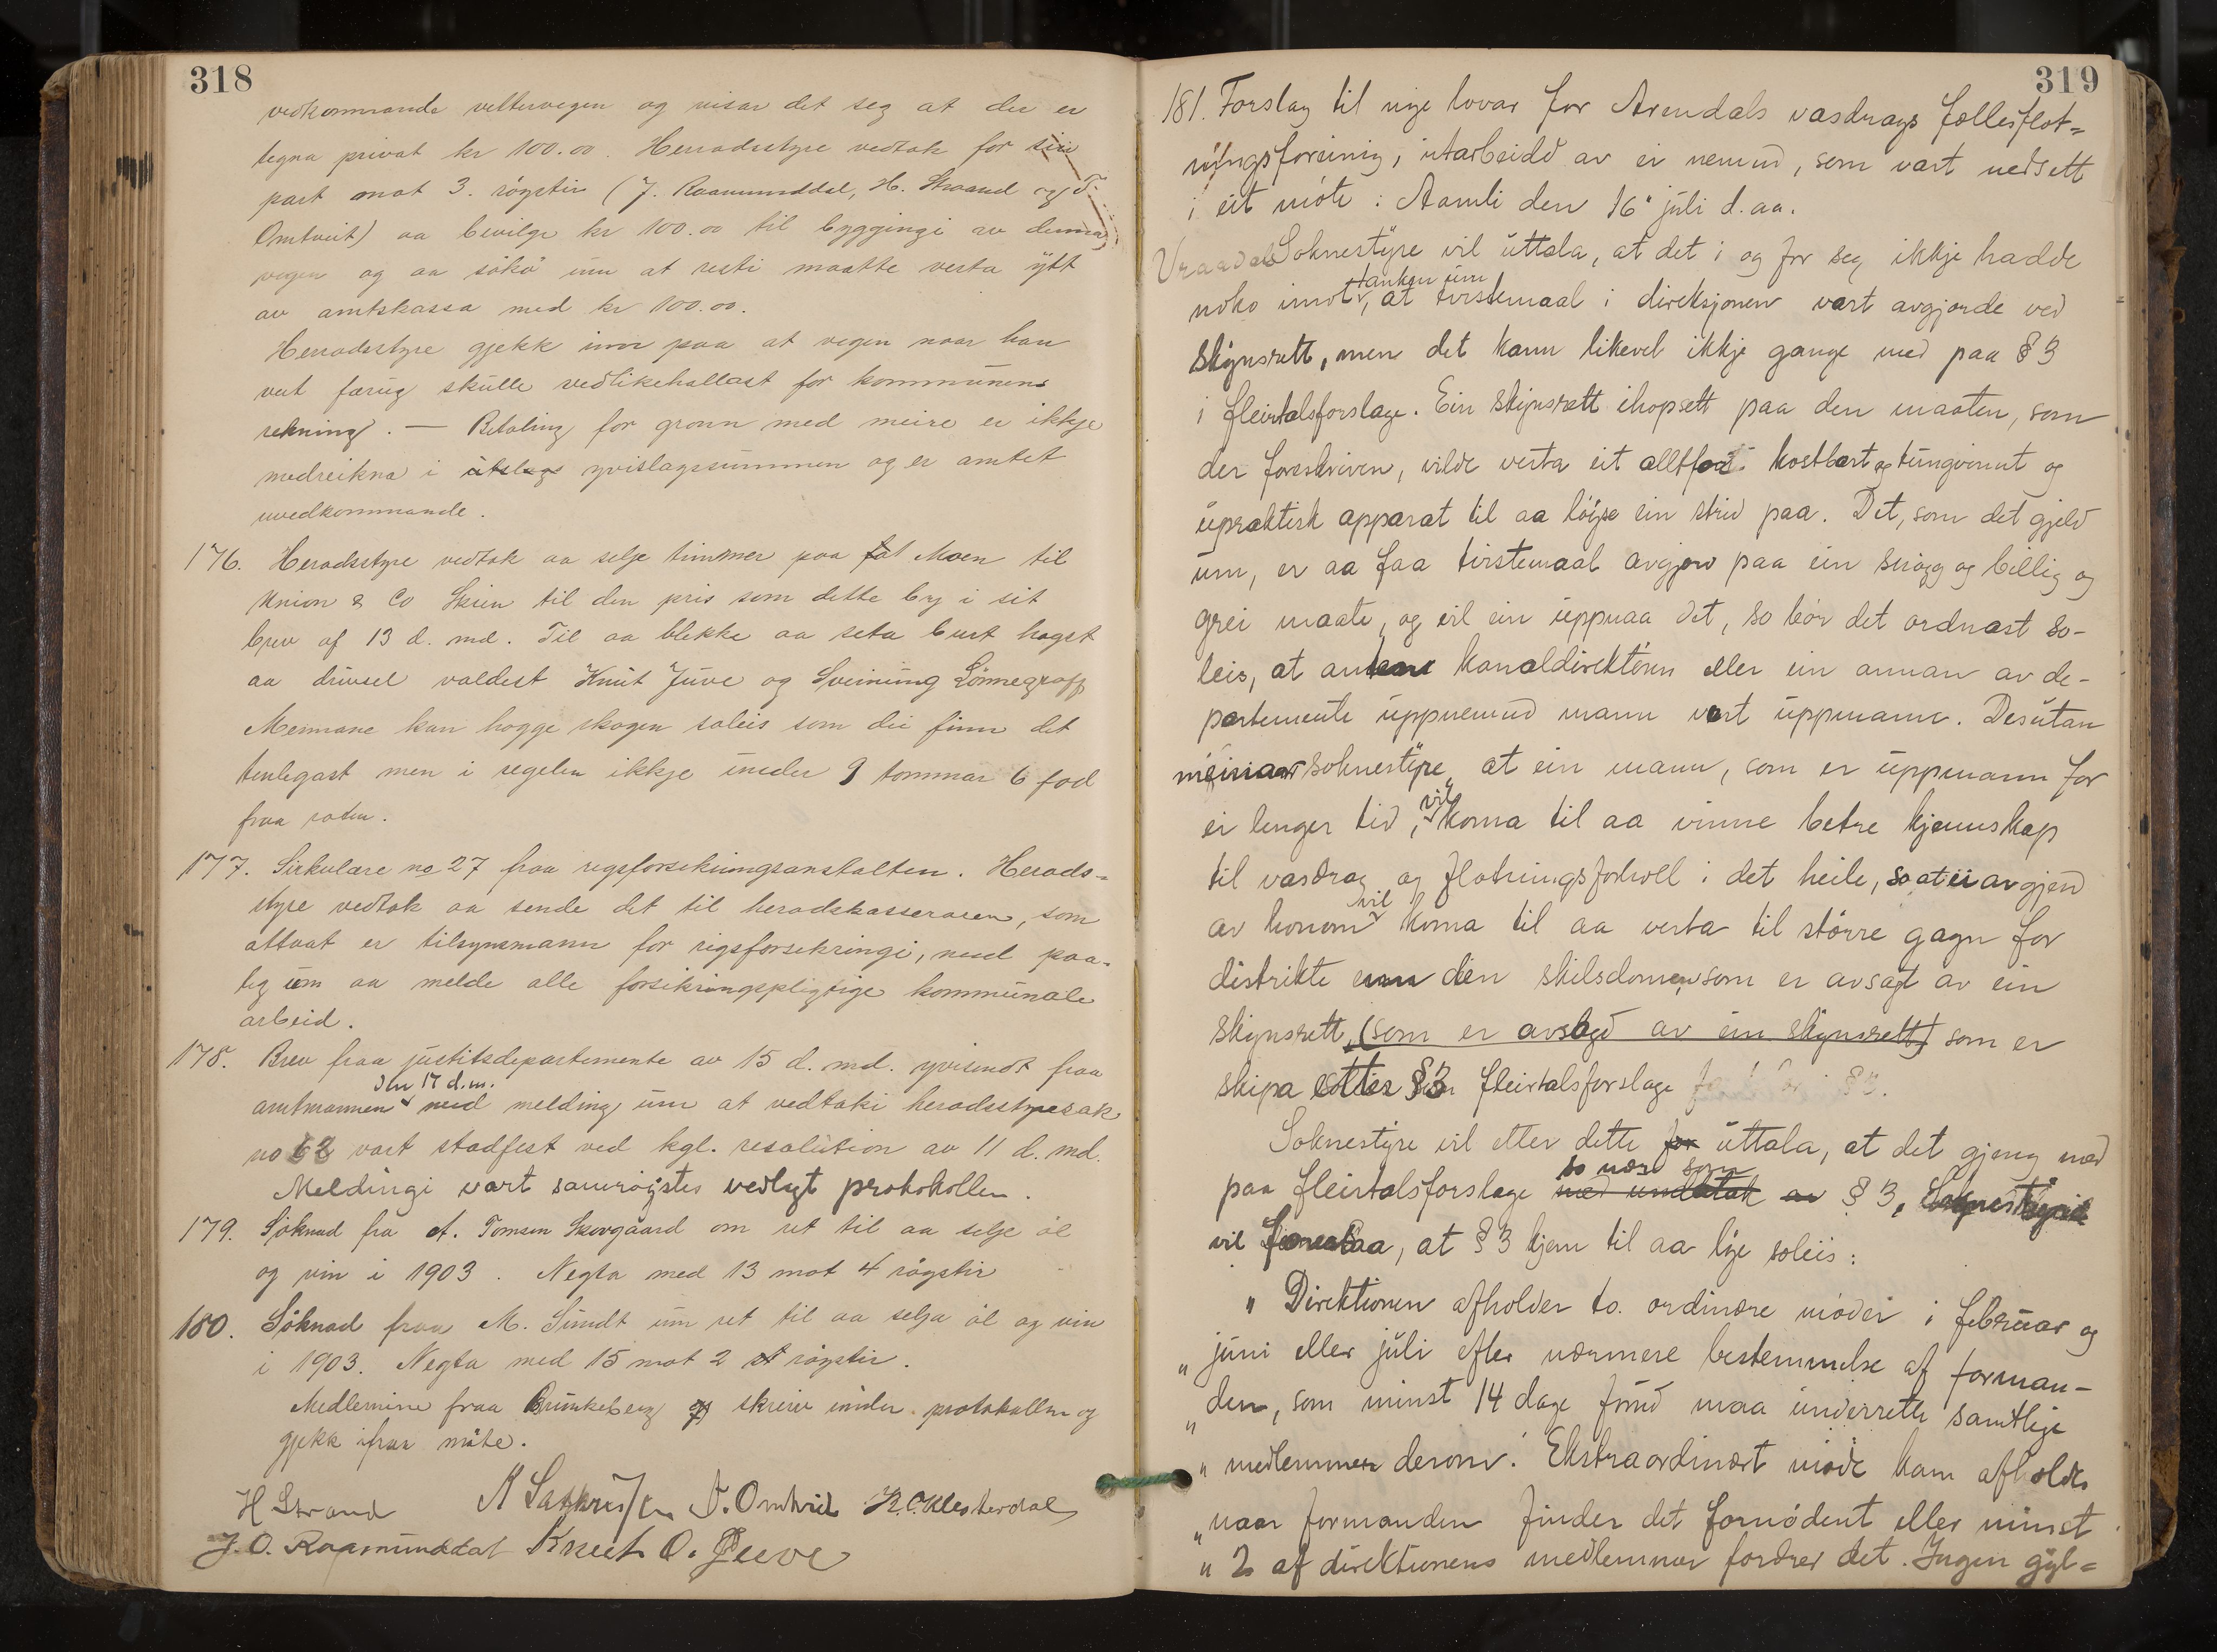 318
vedkommande veltervegen og visar det seg at der er
tegna privat kr 100.00. Herradsstyre vedtok for sin
part mot 3. røyster (J. Raamunddal, H. Straand og T.
Omtveit) aa bevilge kr 100.00 til byggingi av denna
vegen og aa søkö um at resti maatte verta ytt
av amtskassa med kr 100.00.
Herradsstyre gjekk inn paa at vegen naar han
vert færug skulle vedlikehallast for kommunens
rekning. — Betaling for gronn med meire er ikkje
medreikna i utslags yvislagssummen og er amtet
uvedkommande.
176. Heradsstyre vedtok aa selje timmer paa Moen til
Union & Co Skien til den pris som dette by i sit
brev af 13 d. md. Til aa blekke aa seta burt hogst
aa driusel valdest Knut Juve og Sveinung Lönnegraff
Mennane kan hogge skogen soleis som dei finn det
tenlegast men i regelen ikkje under 9 tommar 6 fod
fraa roten.
177. Sirkulære no 27 fraa rigsforsekringsanstalten. Herads-
styre vedtok aa sende det til heradskasseraren, som
attvat er tilsynsmann for rigsforsekringi, med paa-
leg um aa melde alle forsikringspligtige kommunale
arbeid.
178. Brev fraa justitsdepartemente av 15 d. md. yvisendt fraa
den 17 d.m.
amtmannen med melding um at vedtaki heradsstyresak
no 62 vart stadfest ved kgl. resolution av 11 d. md.
Meldingi vart samröystes vedlagt protokollen.
179. Søknad fra A. Tomsen Skovgaard om ret til aa selje öl
og vin i 1903. Negta med 13 mot 4 røyster
180. Søknad fraa M. Sundt um ret til aa selja öl og vin
i 1903. Negta med 15 mot 2 røyster.
Medlemine fraa Brunkeberg skreiv under protokollen og
gjekk ifraa møte.
H Strand K Sakkrisjen T. Omtveit K. O. Klesterdal
J. O. Raamunddal Knut O. Juve
319
181. Forslag til nye lovar for Arendals vasdrags fællesfløt=
ningsforeining, utarbeidd av ei nemnd, som vart nedsett
i eit møte i Aamli den 16" juli d.aa.
Vraadal Soknestyre vil uttala, at det i og for seg ikkje hadde
tanken um
noko imot, at tvistemaal i direksjonen vart avgjorde ved
skjynsrett, men det kann likevel ikkje gange med paa § 3
i fleirtalsforslage. Ein skjynsrett ihopsett paa den maaten, som
der foreskriven, vilde verta eit alltfor kostbart og tungvinnt og
upraktisk apparat til aa løyse ein strid paa. Det, som det gjeld
um, er aa faa tvistemaal avgjord paa ein snögg og billig og
grei maate, og vil ein uppnaa det, so bør det ordnast so-
leis, at anten kanaldirektören eller ein annan av de-
partemente uppnemnd mann vert uppmann. Desutan
meinar soknestyre, at ein mann, som er uppmann for
vil
ei lenger tid, koma til aa vinne betre kjennskap
til vasdrag og fløtningsforholl i det heile, so at ei avgjerd
vil
av honom koma til aa verta til större gagn for
distrikte enn den skilsdomen, som er avsagt av ein
skjynsrett, (som er avsagd av ein skjynsrett) som er
skipa etter § 3 fleirtalsforslage
Soknestyre vil etter dette for uttala, at det gjeng med
so nære som
paa fleirtalsforslage med undatak av § 3, Soknestyre
vil foreslaa, at § 3 kjem til aa lye soleis:
" Direktionen afholder to. ordinære møder i februar og
" juni eller juli efter nærmere bestemmelse af forman-
" den, som minst 14 dage forud maa underrette samtlige
" medlemmer derom. Ekstraordinært møde kan afholdes
" naar formanden finder det fornødent eller minst
" 2 af direktionens medlemmer fordrer det. Ingen gyl=